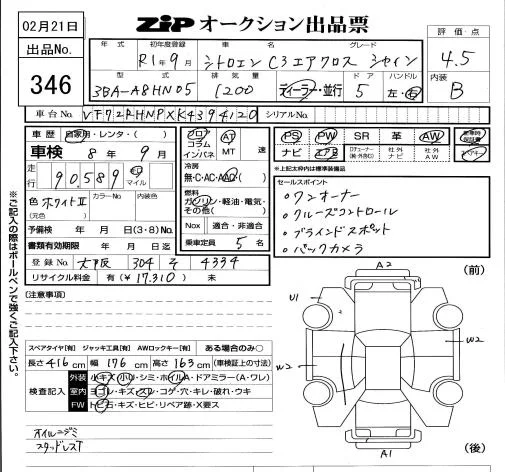 02月21日
ZIP オークション出品票
出品No.
346
年式 初年度登録 車名 グレード
R1年9月 シトロエン C3エアクロス シャイン
型式 排気量 ドア ハンドル
3BA-A8HN05 1200 ディーラー・並行 5 左・右
評価・点
4.5
内装
B
車台No. VF72RHNPXK4394120 シリアルNo.
車歴 自家用・レンタ・( )
車検 8年9月
走行 90,589 km マイル
色 ホワイトⅡ カラーNo. 内装色
(元色)
予備検 年 月 日(3・8)No.
書類有効期限 年 月 日迄
登録No. 大阪 304 そ 4334
リサイクル料金 有(¥17,310) 未
フロア コラム インパネ
AT MT 速
冷房
無・C・AC・AAC
燃料
ガソリン・軽油・電気・その他( )
Nox 適合・非適合
乗車定員 5名
PS PW SR 革 AW
ナビ エアB 社外 社外AW
*上記太枠内は標準装備品
セールスポイント
・ワンオーナー
・クルーズコントロール
・ブラインドスポット
・バックカメラ
※ご記入の際はボールペンで強くご記入下さい。
[注意事項]
スペアタイヤ[有] ジャッキ工具[有] AWロックキー[有] ある場合のみ○
長さ416cm 幅176cm 高さ163cm (車検証上の寸法)
検査記入
外装 小キズ・小U・シミ・ホイルA・ドアミラー(A・ワレ)
室内 ヨゴレ・キズ・スレ・コゲ・穴・キレ・破れ・ウキ
FW トビ石・キズ・ヒビ・リペア跡・X要ス
オイルニジミ
スタッドレスT
(前)
A2
U1
W2
W2
A1
(後)